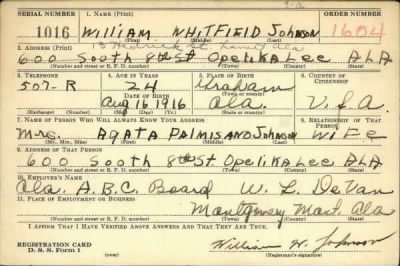 SERIAL NUMBER 1. NAME (Print) ORDER NUMBER
1016 William WHITFIELD Johnson 1604
(First) (Middle) (Last)
2. ADDRESS (Print)
13 St. Lanett Ala
600 Sooth 8th St Opelika Lee ALA
(Number and street or R. F. D. number) (Town) (County) (State)
3. TELEPHONE 4. AGE IN YEARS 5. PLACE OF BIRTH 6. COUNTRY OF CITIZENSHIP
507-R 24 Graham
DATE OF BIRTH (Town or county)
Aug 16 1916 Ala. U.S.A
(Exchange) (Number) (Mo.) (Day) (Yr.) (State or country)
7. NAME OF PERSON WHO WILL ALWAYS KNOW YOUR ADDRESS 8. RELATIONSHIP OF THAT PERSON
Mrs. AGATA PALMISANO JOHNSON WIFE
(Mr., Mrs., Miss) (First) (Middle) (Last)
9. ADDRESS OF THAT PERSON
600 Sooth 8th St Opelika Lee ALA
(Number and street or R. F. D. number) (Town) (County) (State)
10. EMPLOYER'S NAME
Ala. A.B.C. Board W. L. DeVan
11. PLACE OF EMPLOYMENT OR BUSINESS
Montgomery Mont. Ala
(Number and street or R. F. D. number) (Town) (County) (State)
I AFFIRM THAT I HAVE VERIFIED ABOVE ANSWERS AND THAT THEY ARE TRUE.
REGISTRATION CARD
D. S. S. Form 1
William W. Johnson
(Registrant's signature)